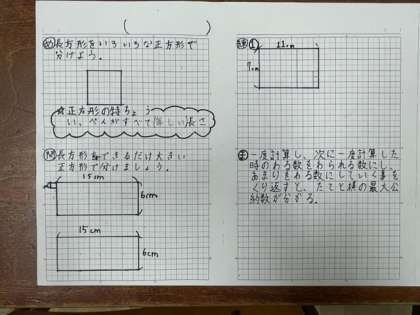 長方形をいろいろな正方形で
分けよう。
☆正方形の特ちょう
い、ぺんがすべて等しい長さ
長方形をできるだけ大きい
正方形で分けましょう。
15cm
6cm
15cm
6cm
11cm
7cm
一度計算し、次に一度計算した
時のわる数をわられる数にし、
あまりをわる数にしていく事を
くり返すと、たてと横の最大公
約数が分かる。